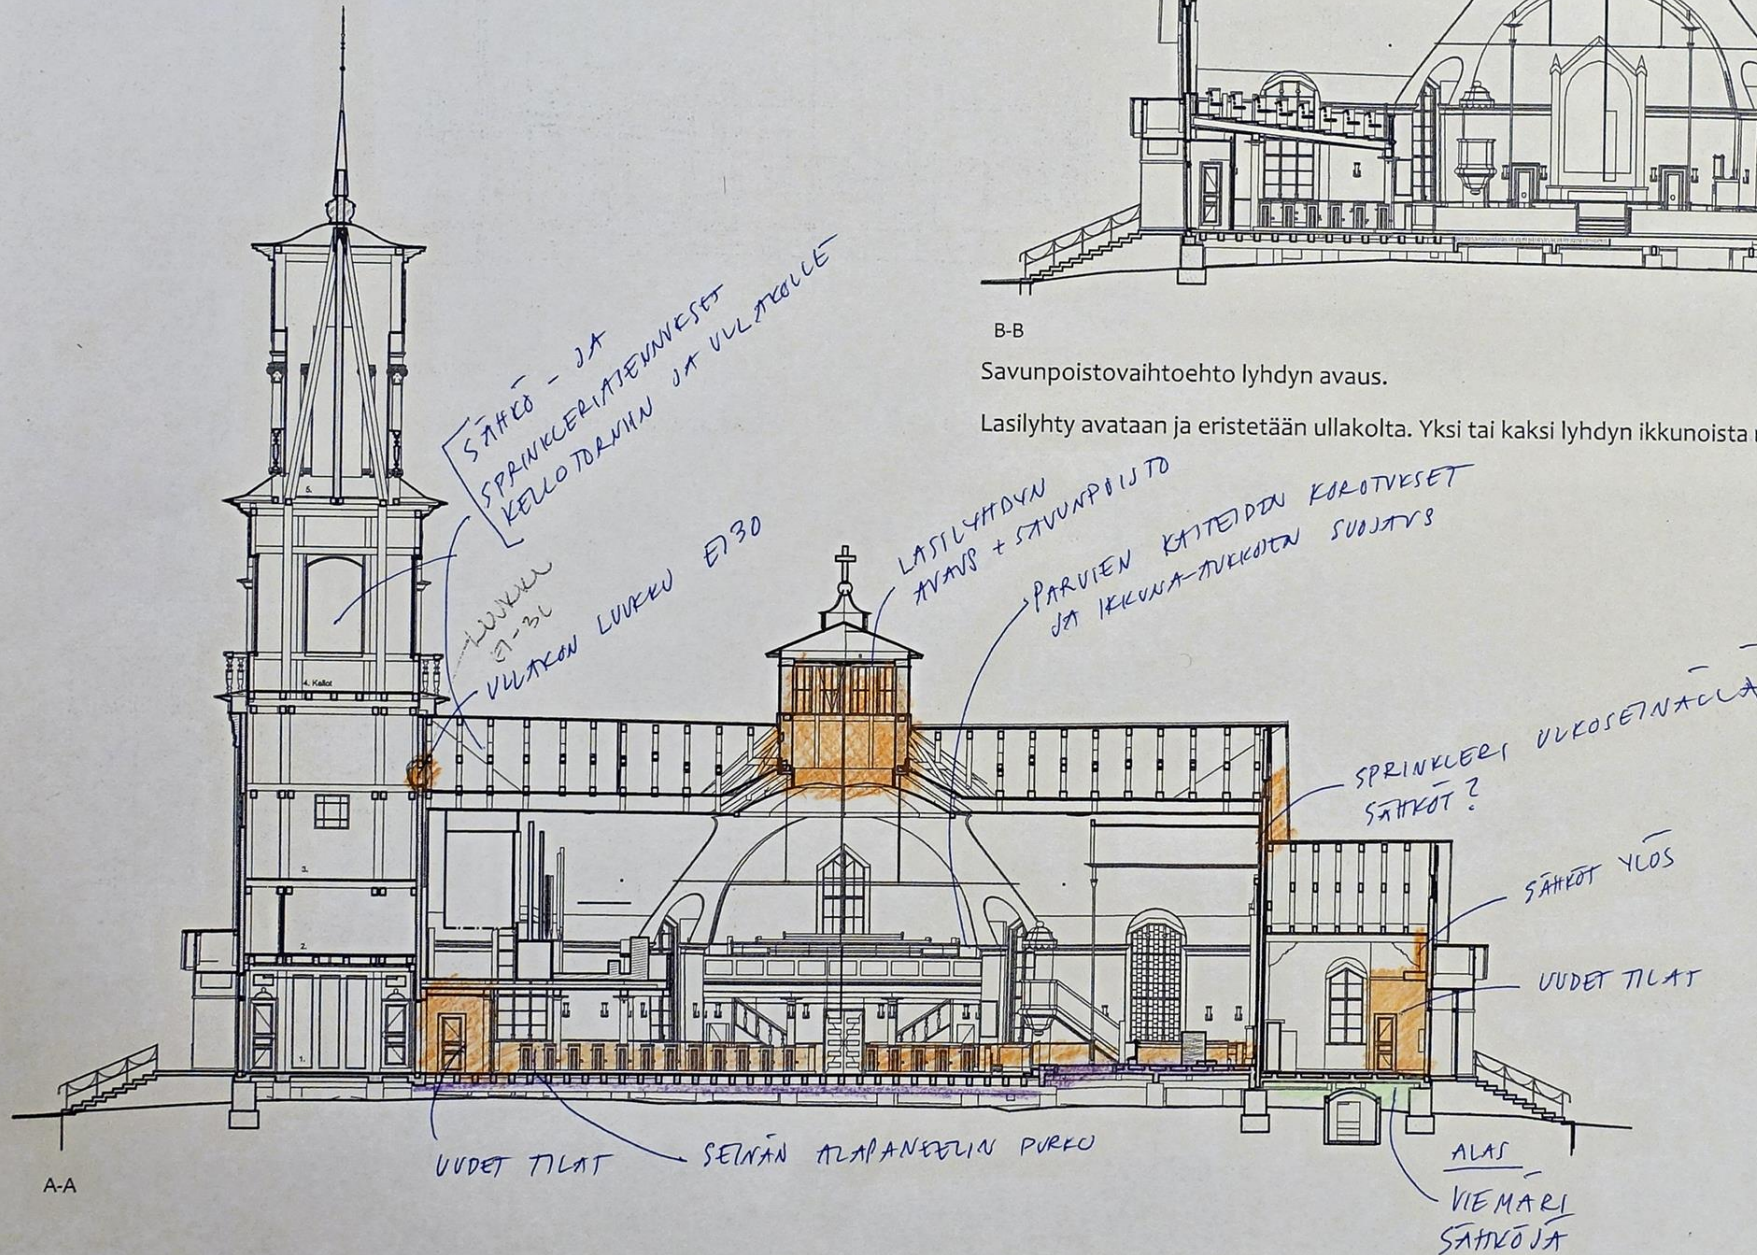 B-B
Savunpoistovaihtoehto lyhdyn avaus.
Lasilyhty avataan ja eristetään ullakolta. Yksi tai kaksi lyhdyn ikkunoista
SÄHKÖ- JA
SPRINKLERIASENNUKSET
KELLOTORNIIN JA ULLAKOLLE
LUUKKU
EI-30
ULLAKON LUUKKU EI30
LASILYHDYN
AVAUS + SAVUNPOISTO
PARVIEN KAITEIDEN KOROTUKSET
JA IKKUNA-AUKKOJEN SUOJAUS
SPRINKLERI ULKOSEINÄLLÄ
SÄHKÖT?
SÄHKÖT YLÖS
UUDET TILAT
5.
4. Kellot
3.
2.
1.
UUDET TILAT
SEINÄN ALAPANEELIN PURKU
ALAS
VIEMÄRI
SÄHKÖJÄ
A-A